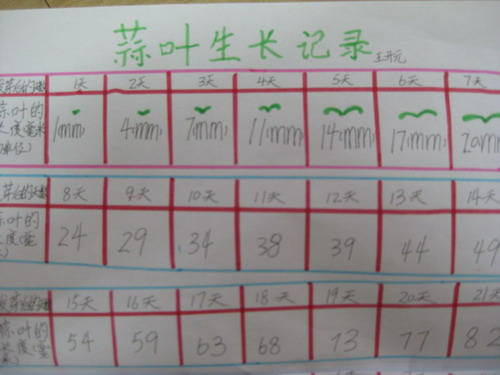 蒜叶生长记录
发芽后的天数 1天 2天 3天 4天 5天 6天 7天
蒜叶的长度(毫米单位) 1(mm) 4(mm) 7(mm) 11(mm) 14(mm) 17(mm) 20(mm)
发芽后的天数 8天 9天 10天 11天 12天 13天 14天
蒜叶的长度(毫 24 29 34 38 39 44 49
发芽后的天数 15天 16天 17天 18天 19天 20天 21天
蒜叶的长度(毫 54 59 63 68 73 77 82